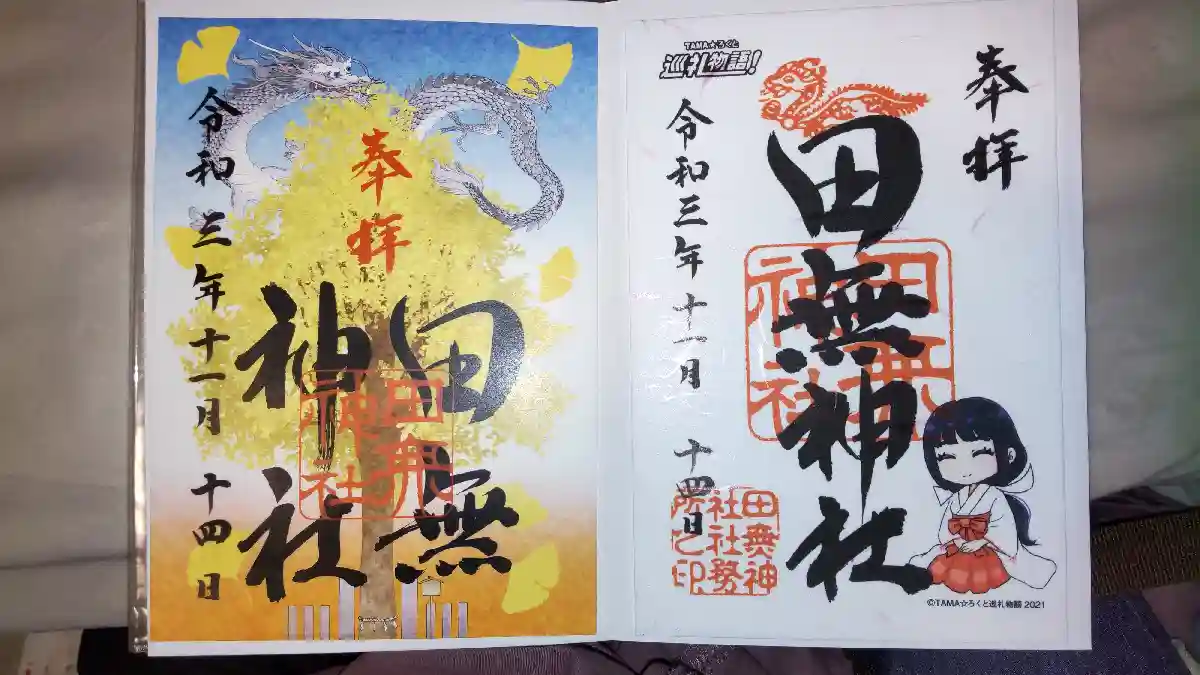 奉拝
田無
神社
令和三年十一月十四日
田無神社
TAMA☆ろくと
巡礼物語!
奉拝
田無神社
令和三年十一月十四日
田無神社
田無神
社社務
所之印
©TAMA☆ろくと巡礼物語 2021